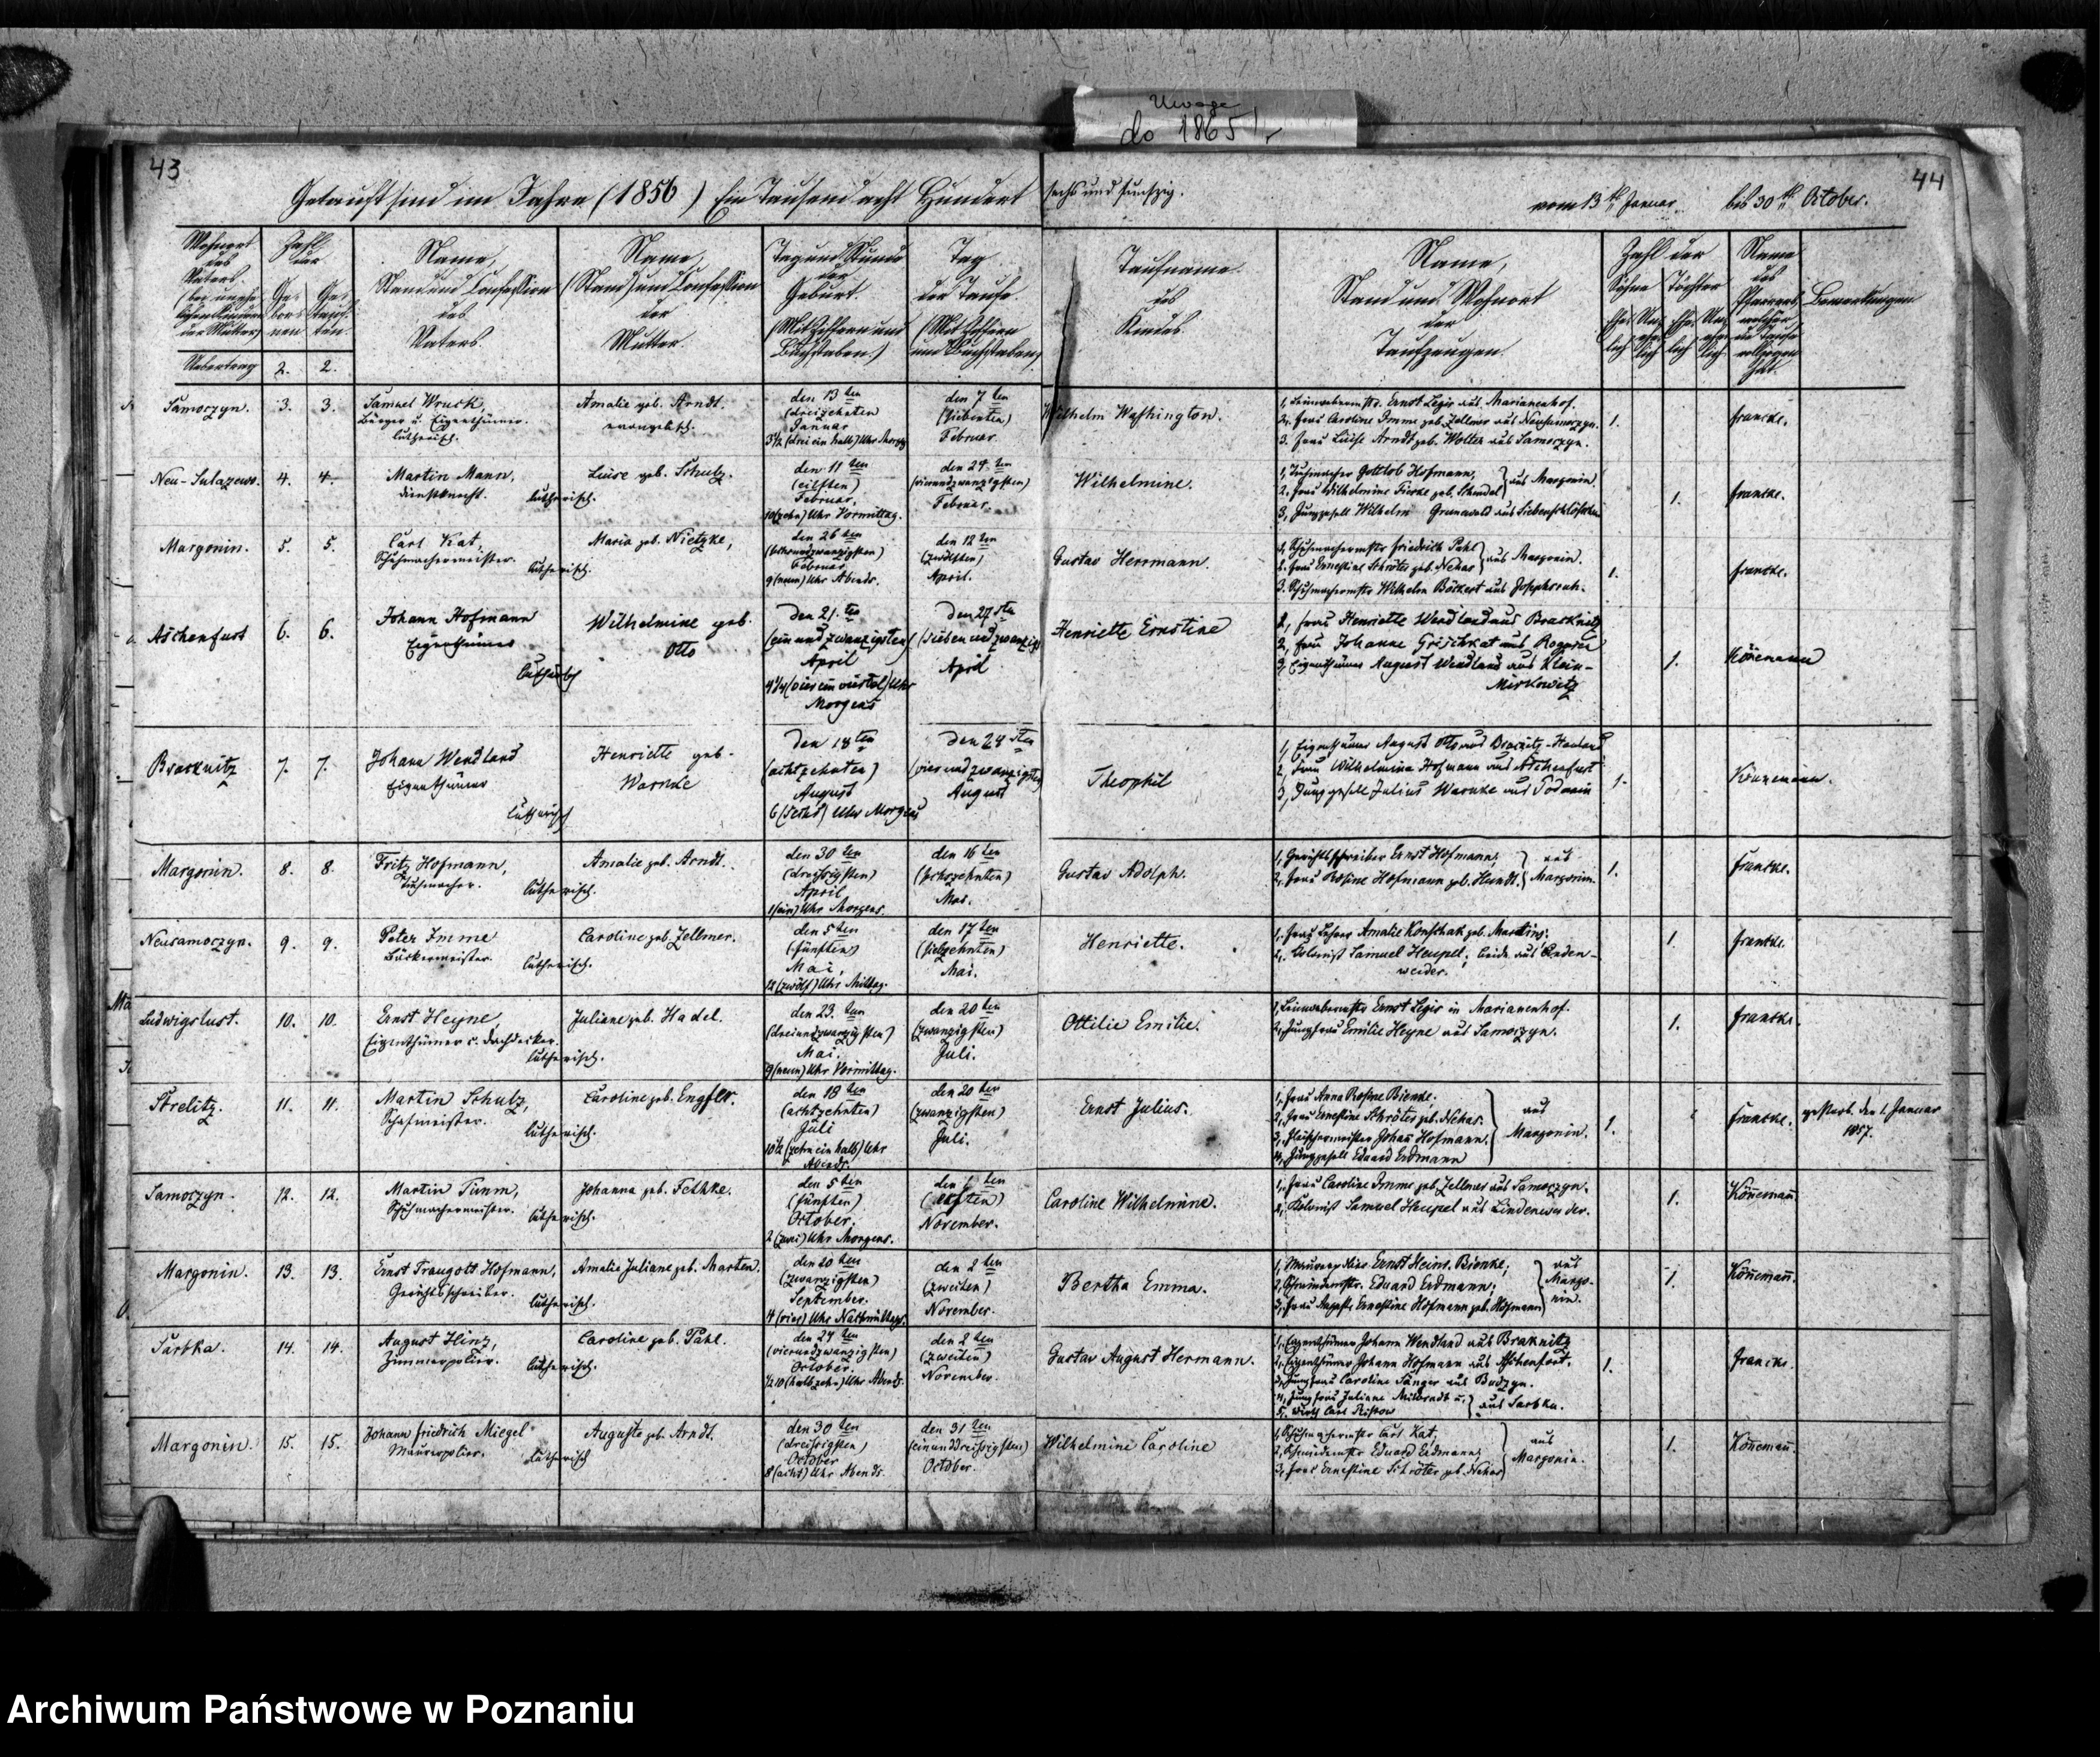 Uwaga
do 1865 r
43
44
Getauft sind im Jahre (1856) Ein Tausend acht Hundert sechs und funfzig.
vom 13ten Januar bis 30ten October.
Wohnort des Vaters. (bei unehelichen Kindern der Mutter)
Zahl der
Gebornen
Getauften.
Name, Stand und Confession des Vaters.
Name, (Stand) und Confession der Mutter.
Tag und Stunde der Geburt. (Mit Ziffern und Buchstaben.)
Tag der Taufe. (Mit Ziffern und Buchstaben)
Taufname des Kindes.
Name, Stand und Wohnort der Taufzeugen.
Zahl der
Söhne
Töchter
Name des Pfarrers, welcher die Taufe vollzogen hat.
Bemerkungen
Uebertrag 2. 2.
Samoczyn. 3. 3.
Samuel Wruck,
Bürger u. Eigenthümer.
lutherisch.
Amalie geb. Arndt.
evangelisch.
den 13ten
(dreizehnten)
Januar
3 1/2 (drei ein halb) Uhr Morgs
den 7ten
(siebenten)
Februar.
Wilhelm Washington.
1, Leinwebermstr. Ernst Legir aus Marianenhof.
2, Frau Caroline Imme geb. Zellmer aus Neusamoczyn.
3. Frau Luise Arndt geb. Wolter aus Samoczyn.
1.
Francke.
4. 4.
Martin Mann,
Dienstknecht.
lutherisch.
Luise geb. Schulz.
den 11ten
(eilften)
Februar.
10 (zehn) Uhr Vormittag.
den 24ten
(vierundzwanzigsten)
Februar.
Wilhelmine.
1, Tuchmacher Gottlob Hofmann,
2. Frau Wilhelmine
aus Margonin
3, Junggesell Wilhelm Grunwald aus
1.
Francke.
Margonin. 5. 5.
Carl Kat,
Schuhmachermeister.
lutherisch.
Maria geb. Nietzke,
den 26ten
(sechsundzwanzigsten)
Februar
9 (neun) Uhr Abends.
den 12ten
(zwölften)
April.
Gustav Herrmann.
1, Schuhmachermstr Friedrich Pahl
2. Frau Ernestine Schröter geb. Nehas
aus Margonin.
3. Schuhmachermstr Wilhelm Böckert aus Josephsruh.
1.
Francke.
Aschenfurt 6. 6.
Johann Hofmann
Eigenthümer
lutherisch
Wilhelmine geb.
Otto
den 21.ten
(ein und zwanzigsten)
April
4 1/4 (vier ein viertel) Uhr
Morgens
den 27sten
(sieben und zwanzigs
April
Henriette Ernstine
1, Frau Henriette Wendland aus Bracknitz
2, Frau Johanne Grischkat aus Rogasen
3, Eigenthümer August Wendland aus Klein-
Mirkowitz
1.
Könemann
Bracknitz 7. 7.
Johann Wendland
Eigenthümer
lutherisch
Henriette geb.
Warnke
den 18ten
(achtzehnten)
August
6 (sechs) Uhr Morgens
den 24sten
(vier und zwanzigsten
August
Theophil
1, Eigenthümer August Otto aus Bracknitz-Hauland
2, Frau Wilhelmina Hofmann aus Aschenfurt
3, Junggesell Julius Warnke aus Podanin
1.
Könemann.
Margonin. 8. 8.
Fritz Hofmann,
Tuchmacher.
lutherisch.
Amalie geb. Arndt.
den 30ten
(dreißigsten)
April
1 (ein) Uhr Morgens.
den 16ten
(sechszehnten)
Mai.
Gustav Adolph.
1, Gerichtsschreiber Ernst Hofmann;
2, Frau Rosine Hofmann geb. Hundt.
aus Margonin.
1.
Francke.
Neusamoczyn. 9. 9.
Peter Imme
Bäckermeister.
lutherisch.
Caroline geb. Zellmer.
den 5ten
(fünften)
Mai,
12 (zwölf) Uhr Mittag.
den 17ten
(siebzehnten)
Mai.
Henriette.
1. Frau Lehrer Amalie Konschak geb. Martins.
2. Colonist Samuel Heupel; beide aus Linden-
werder.
1.
Francke.
Ludwigslust. 10. 10.
Ernst Heyne
Eigenthümer u. Dachdecker.
lutherisch.
Juliane geb. Hadel.
den 23.ten
(dreiundzwanzigsten)
Mai.
9 (neun) Uhr Vormittag.
den 20ten
(zwanzigsten)
Juli.
Ottilie Emilie.
1, Leinwebermstr Ernst Legir in Marianenhof.
2, Jungfrau Emilie Heyne aus Samoczyn.
1.
Francke.
Strelitz. 11. 11.
Martin Schulz,
Schafmeister.
lutherisch.
Caroline geb. Engfer.
den 18ten
(achtzehnten)
Juli
10 1/2 (zehn ein halb) Uhr
Abends.
den 20ten
(zwanzigsten)
Juli.
Ernst Julius.
1, Frau Anna Rosine Bienke.
2, Frau Ernestine Schröter geb. Nehas.
3, Fleischermeister Johann Hofmann.
4, Junggesell Eduard Erdmann
aus Margonin.
1.
Francke.
gestorb. den 1. Januar
1857.
Samoczyn. 12. 12.
Martin Timm,
Schuhmachermeister.
lutherisch.
Johanna geb. Fethke.
den 5ten
(fünften)
October.
2 (zwei) Uhr Morgens.
den 1ten
(ersten)
November.
Caroline Wilhelmine.
1, Frau Caroline Imme geb. Zellmer aus Samoczyn.
2, Kolonist Samuel Heupel aus Lindenwerder.
1.
Könemann.
Margonin. 13. 13.
Ernst Traugott Hofmann,
Gerichtsschreiber.
lutherisch.
Amalie Juliane geb. Marten.
den 20ten
(zwanzigsten)
September.
4 (vier) Uhr Nachmittags.
den 2ten
(zweiten)
November.
Bertha Emma.
1, Maurerpolier Ernst Heinr. Bienke;
2, Schmiedemstr. Eduard Erdmann;
3, Frau Auguste Ernestine Hofmann geb. Hofmann
aus Margonin.
1.
Könemann.
Sarbka. 14. 14.
August Hinz,
Zimmerpolier.
lutherisch.
Caroline geb. Pahl.
den 24ten
(vierundzwanzigsten)
October.
1/2 10 (halbzehn) Uhr Abends.
den 2ten
(zweiten)
November.
Gustav August Hermann.
1, Eigenthümer Johann Wendland aus Braknitz
2, Eigenthümer Johann Hofmann aus Aschenfort.
3, Jungfrau Caroline Sänger aus Budzyn.
4, Jungfrau Juliane Milbradt u.
5. Wirth Carl Ristow
aus Sarbka.
1.
Francke.
Margonin. 15. 15.
Johann Friedrich Miegel
Maurerpolier.
lutherisch
Auguste geb. Arndt.
den 30ten
(dreißigsten)
October
8 (acht) Uhr Abends.
den 31ten
(einunddreißigsten)
October.
Wilhelmine Caroline
1, Schuhmachermstr Carl Kat,
2, Schmiedemstr Eduard Erdmann;
3, Frau Ernestine Schröter geb. Nehas
aus Margonin.
1.
Könemann.
Archiwum Państwowe w Poznaniu